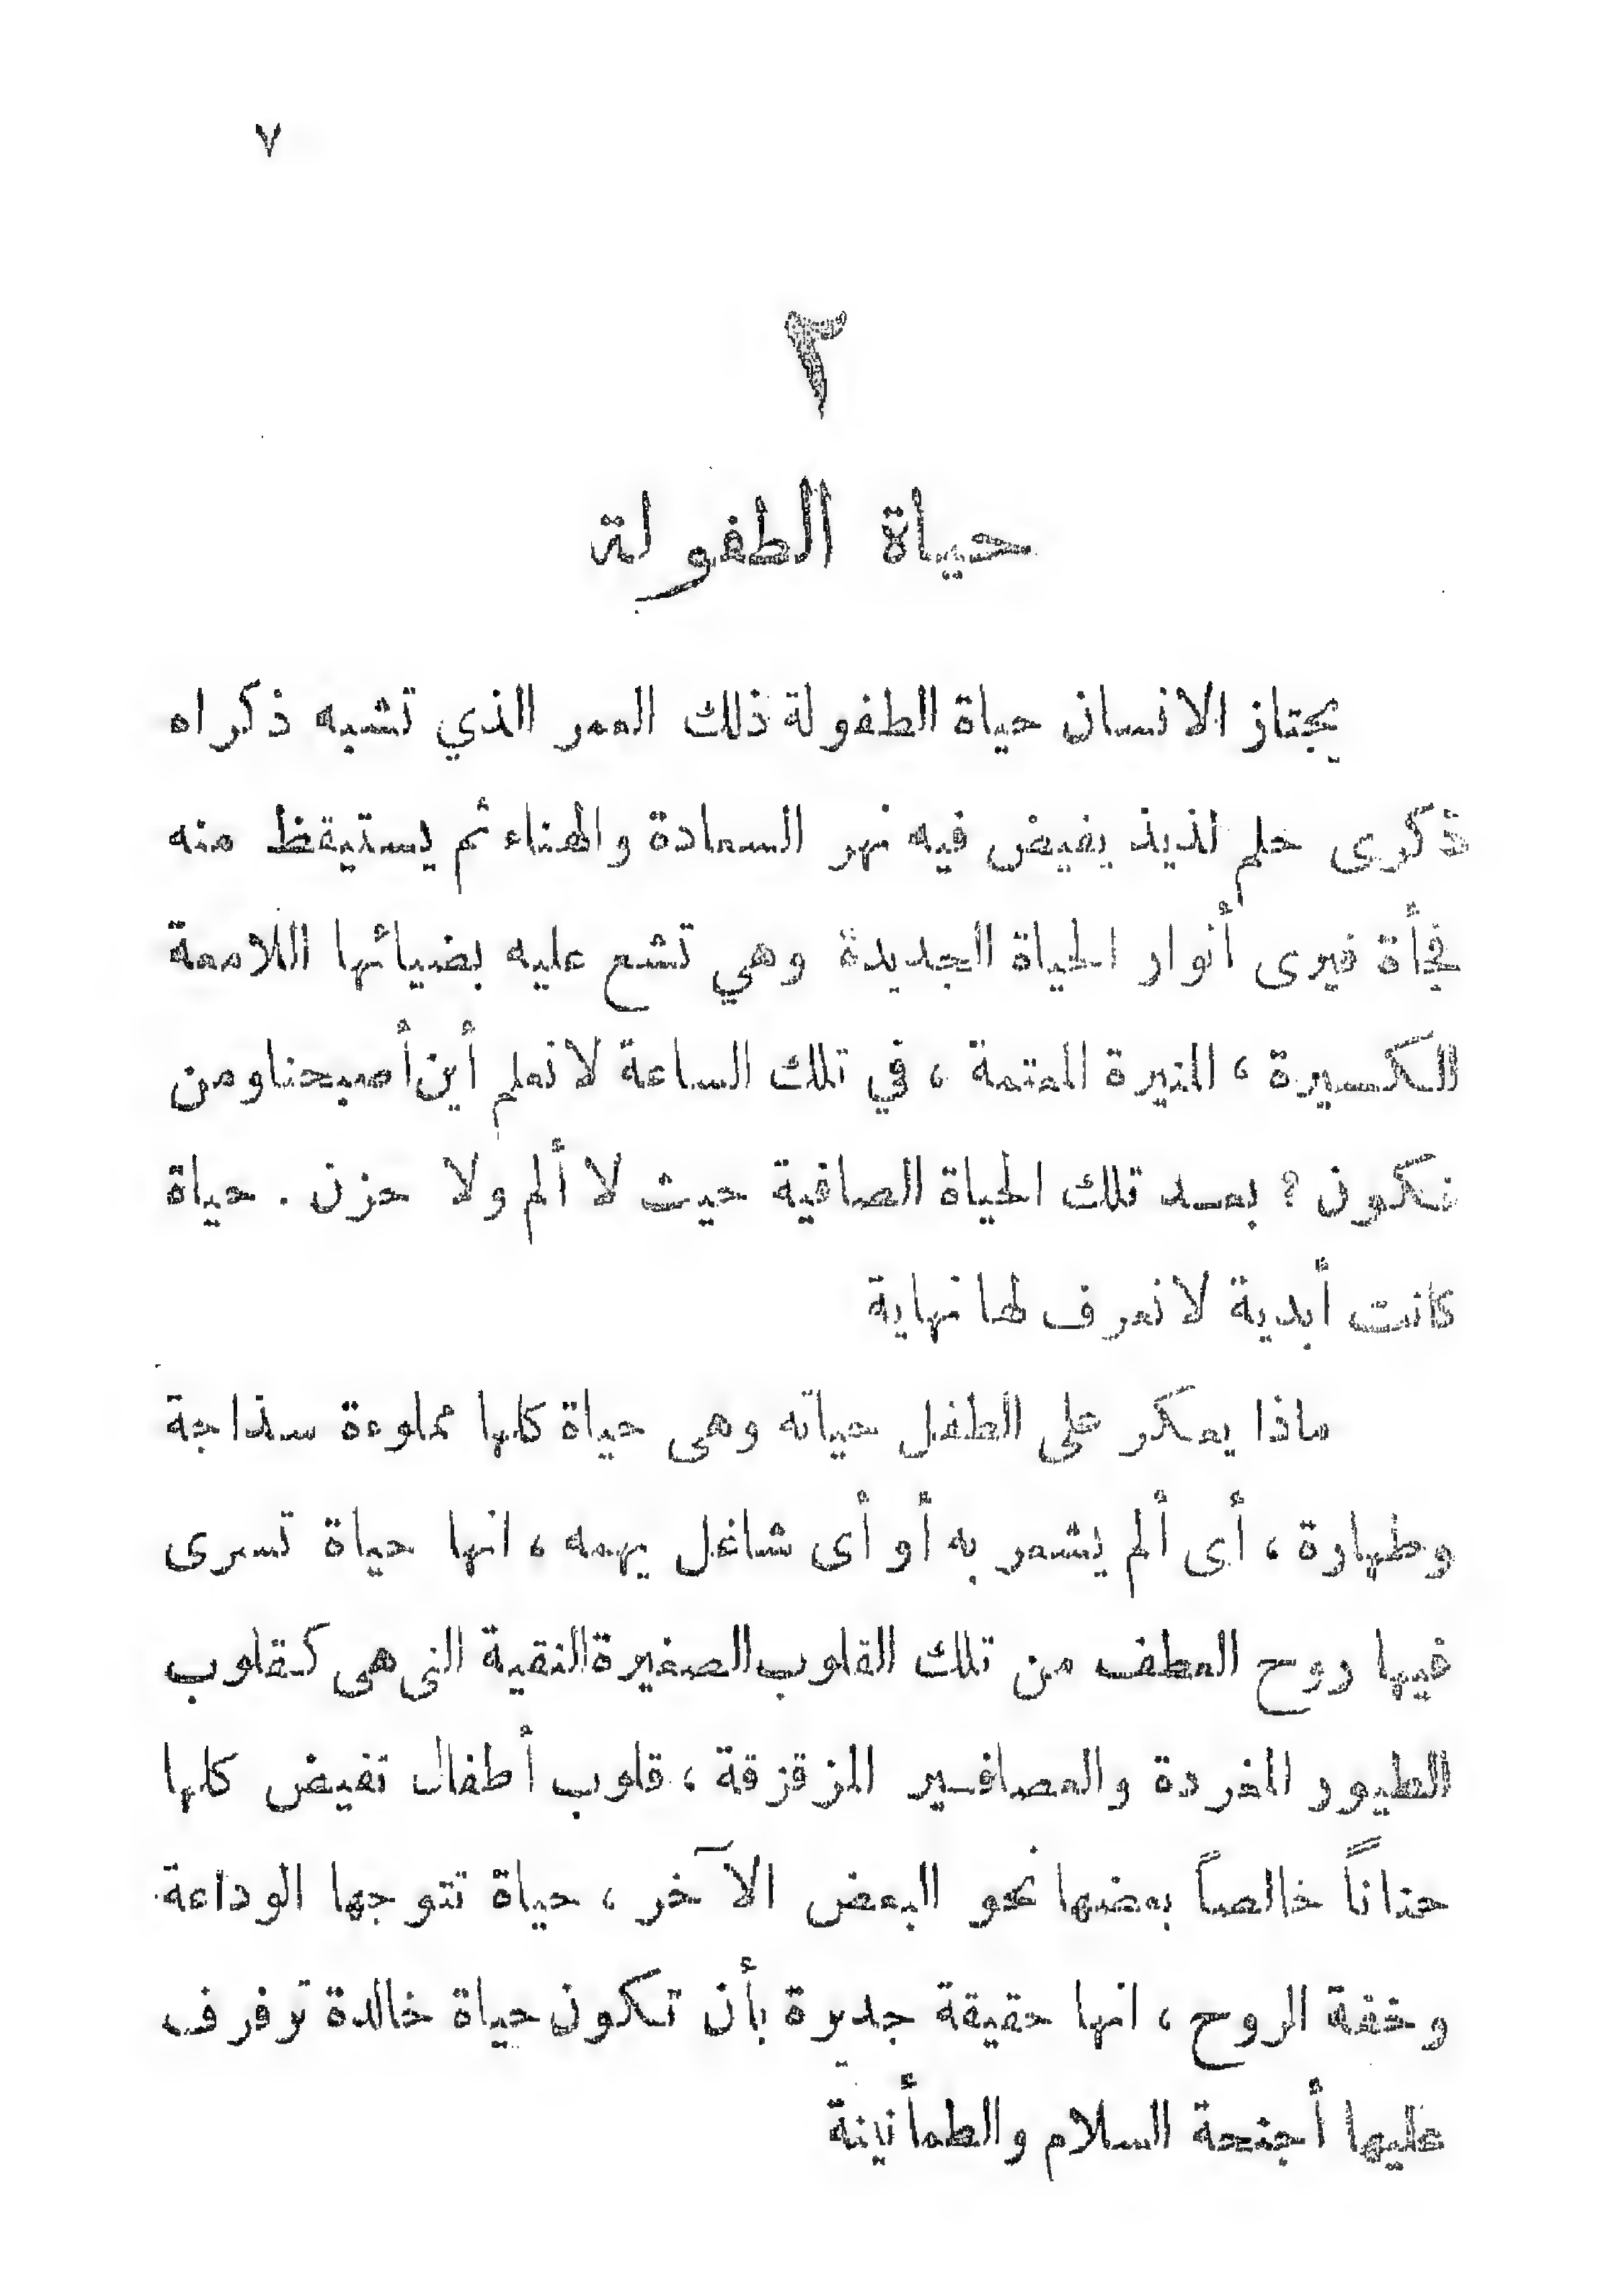 ٧
٢
حياة الطفولة
يجتاز الانسان حياة الطفولة ذلك العمر الذي تشبه ذكراه
ذكرى حلم لذيذ يفيض فيه نهر السعادة والهناء ثم يستيقظ منه
فجأة فيرى أنوار الحياة الجديدة وهي تشع عليه بضيائها اللامعة
الكسيرة ، المنيرة المعتمة ، في تلك الساعة لا نعلم أين أصبحنا ومن
نكون ؟ بعد تلك الحياة الصافية حيث لا ألم ولا حزن . حياة
كانت أبدية لا نعرف لها نهاية
ماذا يعكر على الطفل حياته وهى حياة كلها مملوءة سذاجة
وطهارة ، أى ألم يشعر به أو أى شاغل يهمه ، انها حياة تسرى
فيها روح العطف من تلك القلوب الصغيرة النقية التى هى كقلوب
الطيور المغردة والعصافير المزقزقة ، قلوب أطفال تفيض كلها
حناناً خالصاً بعضها نحو البعض الآخر ، حياة تتوجها الوداعة
وخفة الروح ، انها حقيقة جديرة بأن تكون حياة خالدة ترفرف
عليها أجنحة السلام والطمأنينة